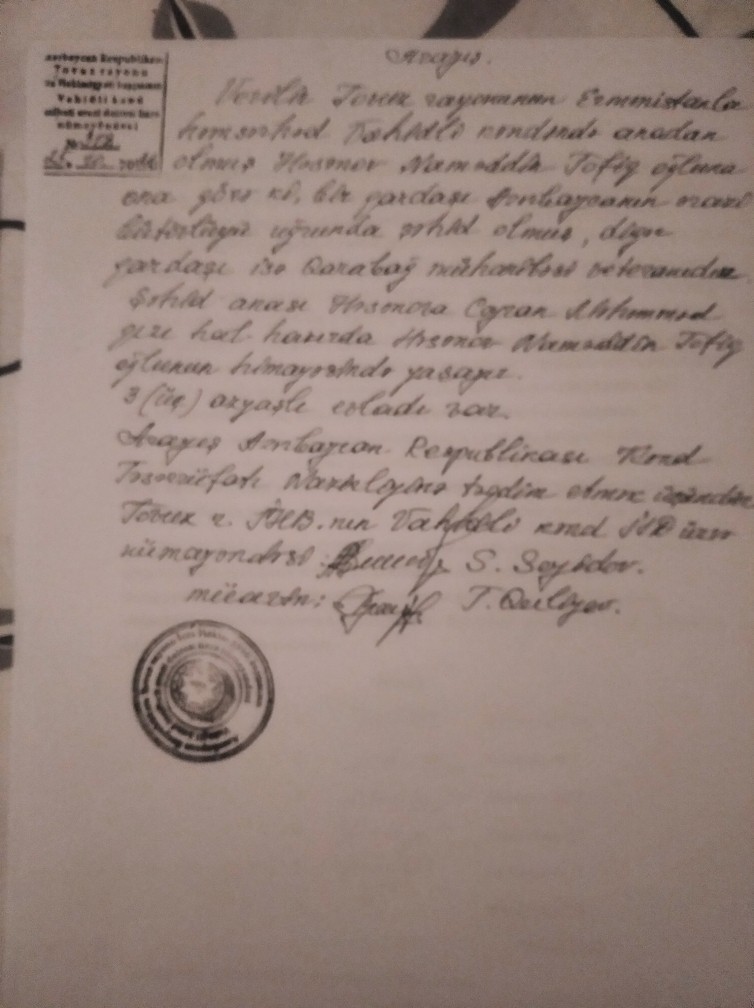 Arayış.
Azərbaycan Respublikası
Tovuz rayonu
Icra Hakimiyyəti başçısının
Vahidli kənd
nümayəndəsi
Verilir Tovuz rayonunun Ermənistanla
həmsərhəd Vahidli kəndində anadan
olmuş Həsənov Naməddin Tofiq oğluna
ona görə ki, bir qardaşı Azərbaycanın ərazi
bütövlüyü uğrunda şəhid olmuş, digər
qardaşı isə Qarabağ mühəribəsi veteranıdır.
Şəhid anası Həsənova Ceyran Məhəmməd
qızı hal hazırda Həsənov Naməddin Tofiq
oğlunun himayəsində yaşayır.
3 (üç) azyaşlı övladı var.
Arayış Azərbaycan Respublikası Kənd
Təsərrüfatı Nazirliyinə təqdim etmək üçündür
Tovuz r. İHB.nın Vahidli kənd İƏD üzrə
nümayəndəsi: S. Seyidov.
mücavin: T. Quliyev.